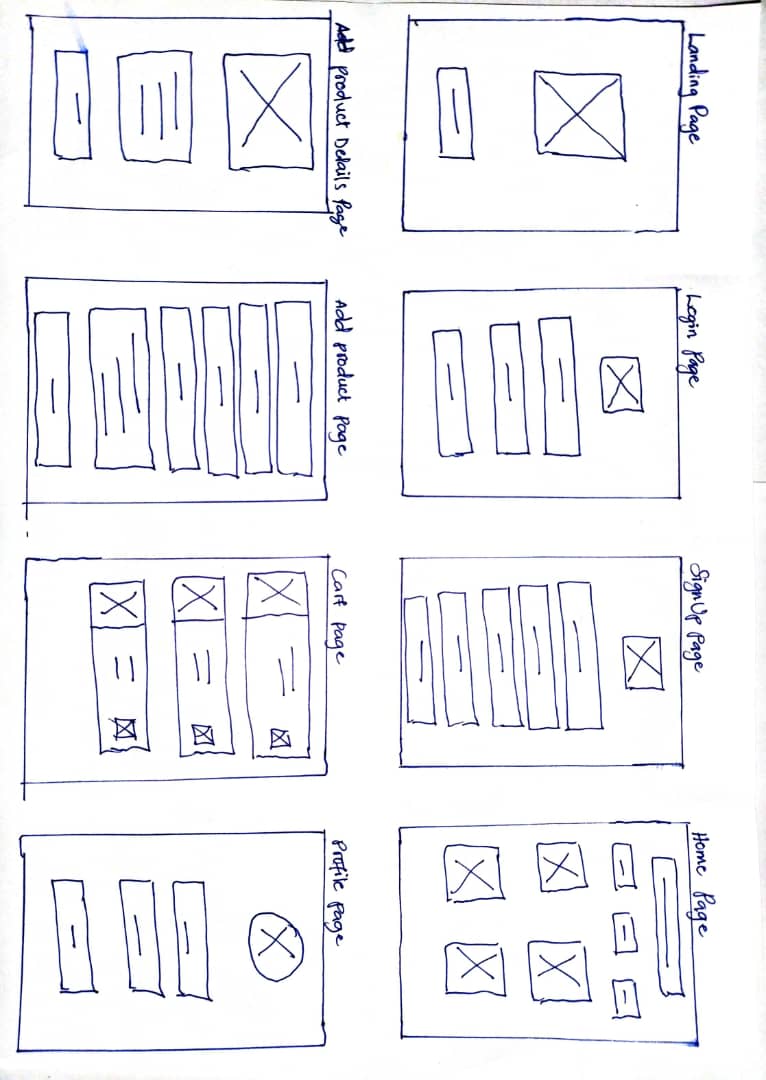 Landing Page
Login Page
SignUp Page
Home Page
Product Details Page
Add product Page
Cart Page
Profile Page